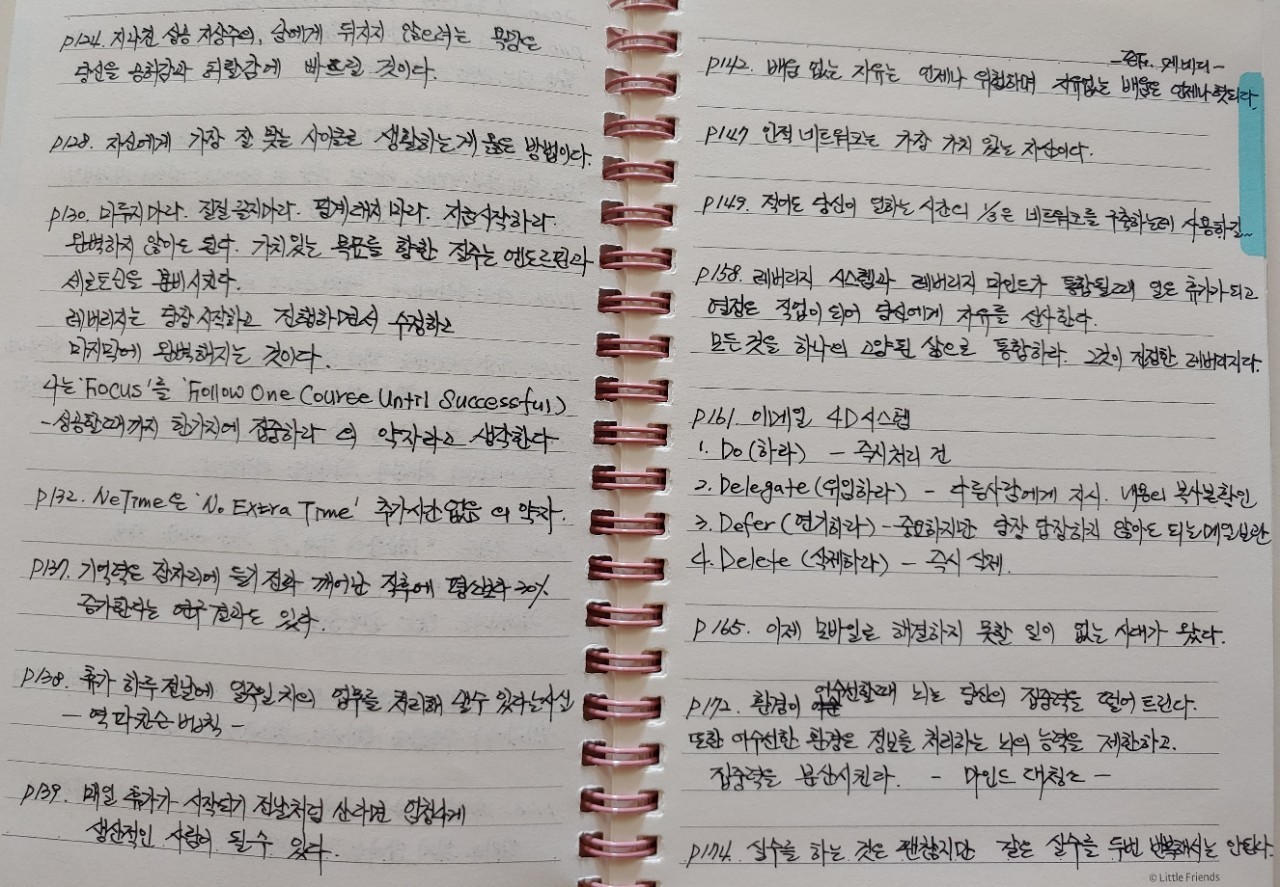 p124. 지나친 성공 지상주의, 남에게 뒤지지 않으려는 욕망은
당신을 공허감과 허탈감에 빠뜨릴 것이다.
p128. 자신에게 가장 잘 맞는 사이클로 생활하는게 옳은 방법이다.
p130. 미루지마라. 질질 끌지마라. 핑계대지 마라. 지금시작하라.
완벽하지 않아도 된다. 가치있는 목표를 향한 질주는 엔도르핀과
세로토닌을 분비시킨다.
레버리지는 당장 시작하고 진행하면서 수정하고
마지막에 완벽해지는 것이다.
나는 'Focus'를 'Follow One Course Until Successful)
-성공할때까지 한가지에 집중하라 의 약자라고 생각한다
p132. NeTime은 'No Extra Time' 추가시간 없음 의 약자.
p137. 기억력은 잠자리에 들기 전과 깨어난 직후에 평소보다 30%
증가한다는 연구 결과도 있다.
p138. 휴가 하루 전날에 일주일 치의 업무를 처리해 낼수 있다는
- 역 파킨슨 법칙 -
p139. 매일 휴가가 시작되기 전날처럼 산다면 엄청나게
생산적인 사람이 될수 있다.
케네디 -
p142. 배움 없는 자유는 언제나 위험하며 자유없는 배움은 언제나 헛되다.
p147 인적 네트워크는 가장 가치 있는 자산이다.
p149. 적어도 당신이 일하는 시간의 1/3은 네트워크를 구축하는데 사용하길~
p158. 레버리지 시스템과 레버리지 마인드가 통합될때 일은 휴가가 되고
열정은 직업이 되어 당신에게 자유를 선사한다.
모든 것을 하나의 고양된 삶으로 통합하라. 그것이 진정한 레버리지다.
p161. 이메일 4D시스템
1. Do (하라) - 즉시처리 건
2. Delegate (위임하라) - 다른사람에게 지시. 내용의 복사본확인
3. Defer (연기하라) - 중요하지만 당장 답장하지 않아도 되는메일보관
4. Delete (삭제하라) - 즉시 삭제.
p165. 이제 모바일로 해결하지 못할 일이 없는 시대가 왔다.
p172. 환경이 어수선할때 뇌는 당신의 집중력을 떨어 트린다.
또한 어수선한 환경은 정보를 처리하는 뇌의 능력을 제한하고.
집중력을 분산시킨다. - 마인드 대청소 -
p174. 실수를 하는 것은 괜찮지만 같은 실수를 두번 반복해서는 안된다.
© Little Friends